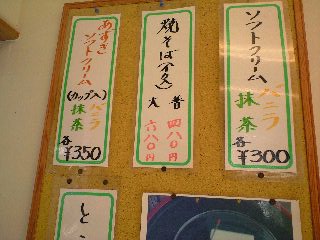 ソフトクリーム
バニラ
抹茶
各
¥300
焼そば(太欠)
大 普
四八〇円
六八〇円
あずき
ソフトクリーム
(カップ入)
バニラ
抹茶
各
¥350
と